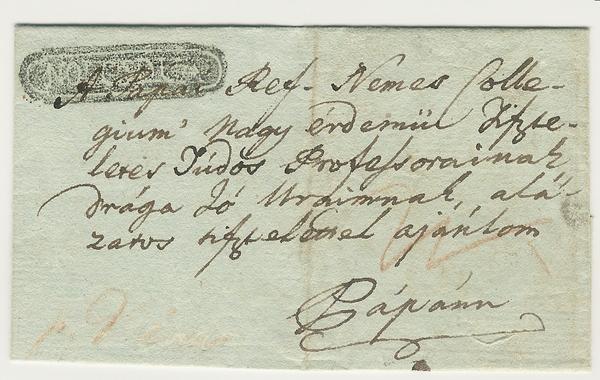 A Pápai Ref. Nemes Colle-
gium' Nagy érdemű Tiszte-
letes Túdós Professorainak
drága Jó Uraimnak, alá-
zatos tisztelettel ajánlom
Pápánn